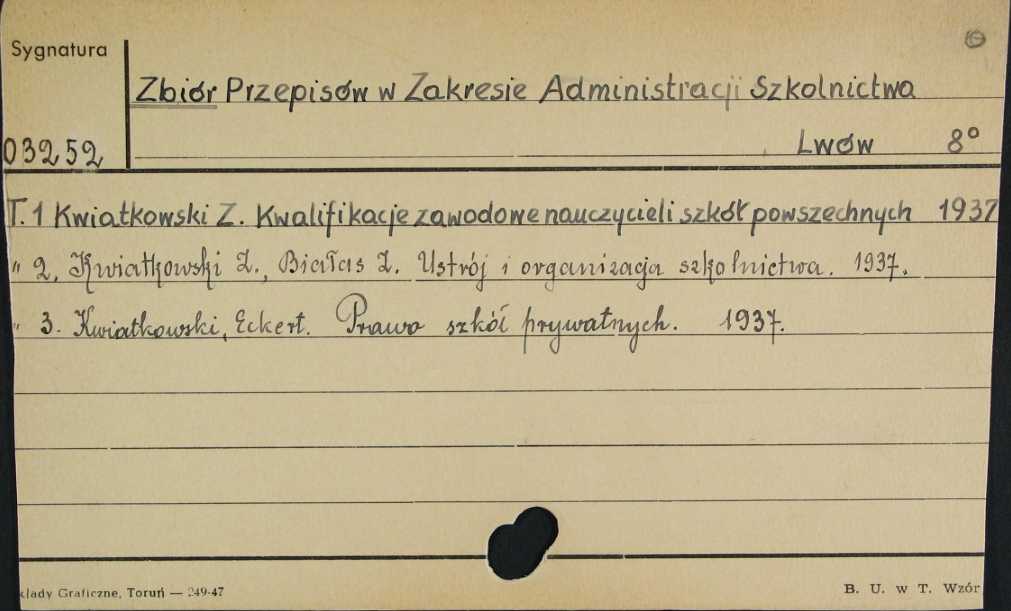 Sygnatura
Zbiór Przepisów w Zakresie Administracji Szkolnictwa
03252
Lwów 8°
T. 1 Kwiatkowski Z. Kwalifikacje zawodowe nauczycieli szkół powszechnych 1937
" 2. Kwiatkowski Z., Białas Z. Ustrój i organizacja szkolnictwa. 1937.
" 3. Kwiatkowski, Eckert. Prawo szkół prywatnych. 1937.
łady Graficzne, Toruń — 249-47
B. U. w T. Wzór